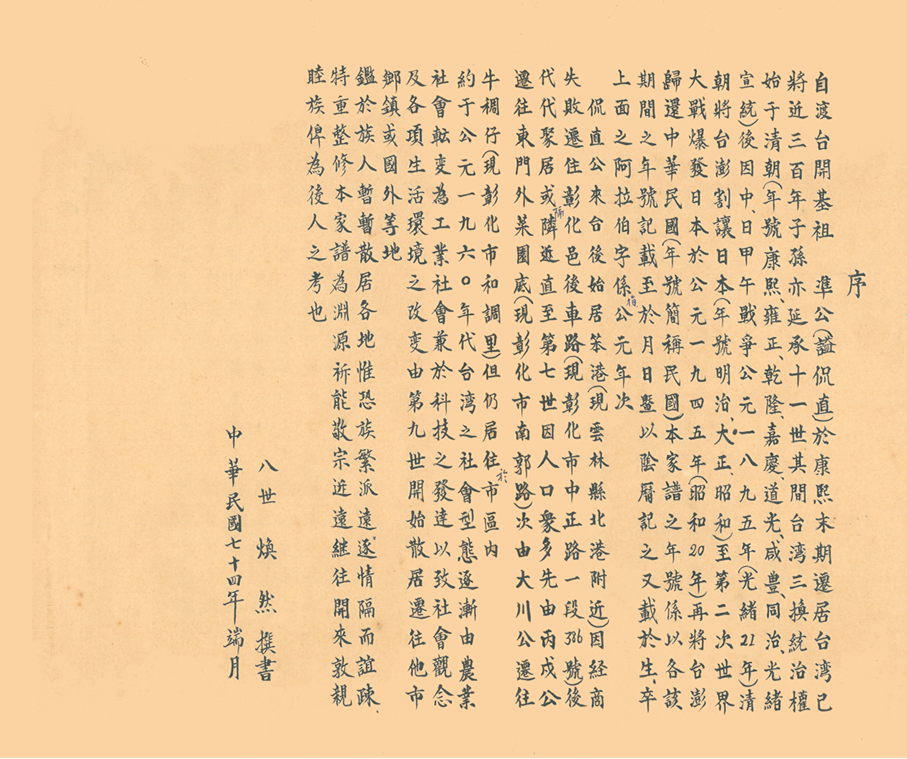 序
自渡台開基祖　準公(諡侃直)於康熙末期遷居台湾已
將近三百年子孫亦延承十一世其間台湾三換統治權
始于清朝(年號康熙、雍正、乾隆、嘉慶、道光、咸豊、同治、光緒
宣統)後因中、日甲午戰爭公元一八九五年(光緒21年)清
朝將台澎割讓日本(年號明治、大正、昭和)至第二次世界
大戰爆發日本於公元一九四五年(昭和20年)再將台澎
歸還中華民國(年號簡稱民國)本家譜之年號係以各該
期間之年號記載至於月日盡以陰曆記之又載於生、卒
上面之阿拉伯字係指公元年次
侃直公來台後始居笨港(現雲林縣北港附近)因経商
失敗遷住彰化邑後車路(現彰化市中正路一段386號)後
代代聚居或隔隣近直至第七世因人口衆多先由丙戍公
遷往東門外菜園底(現彰化市南郭路)次由大川公遷往
牛稠仔(現彰化市和調里)但仍居住於市區內
約于公元一九六０年代台湾之社會型態逐漸由農業
社會転変為工業社會兼於科技之發達以致社會觀念
及各項生活環境之改变由第九世開始散居遷往他市
鄉鎮或國外等地
鑑於族人暫暫散居各地惟恐族繁派遠、逐情隔而誼疎、
特重整修本家譜為淵源祈能敬宗近遠継往開來敦親
睦族俾為後人之考也
八世　煥然　撰書
中華民國七十四年端月